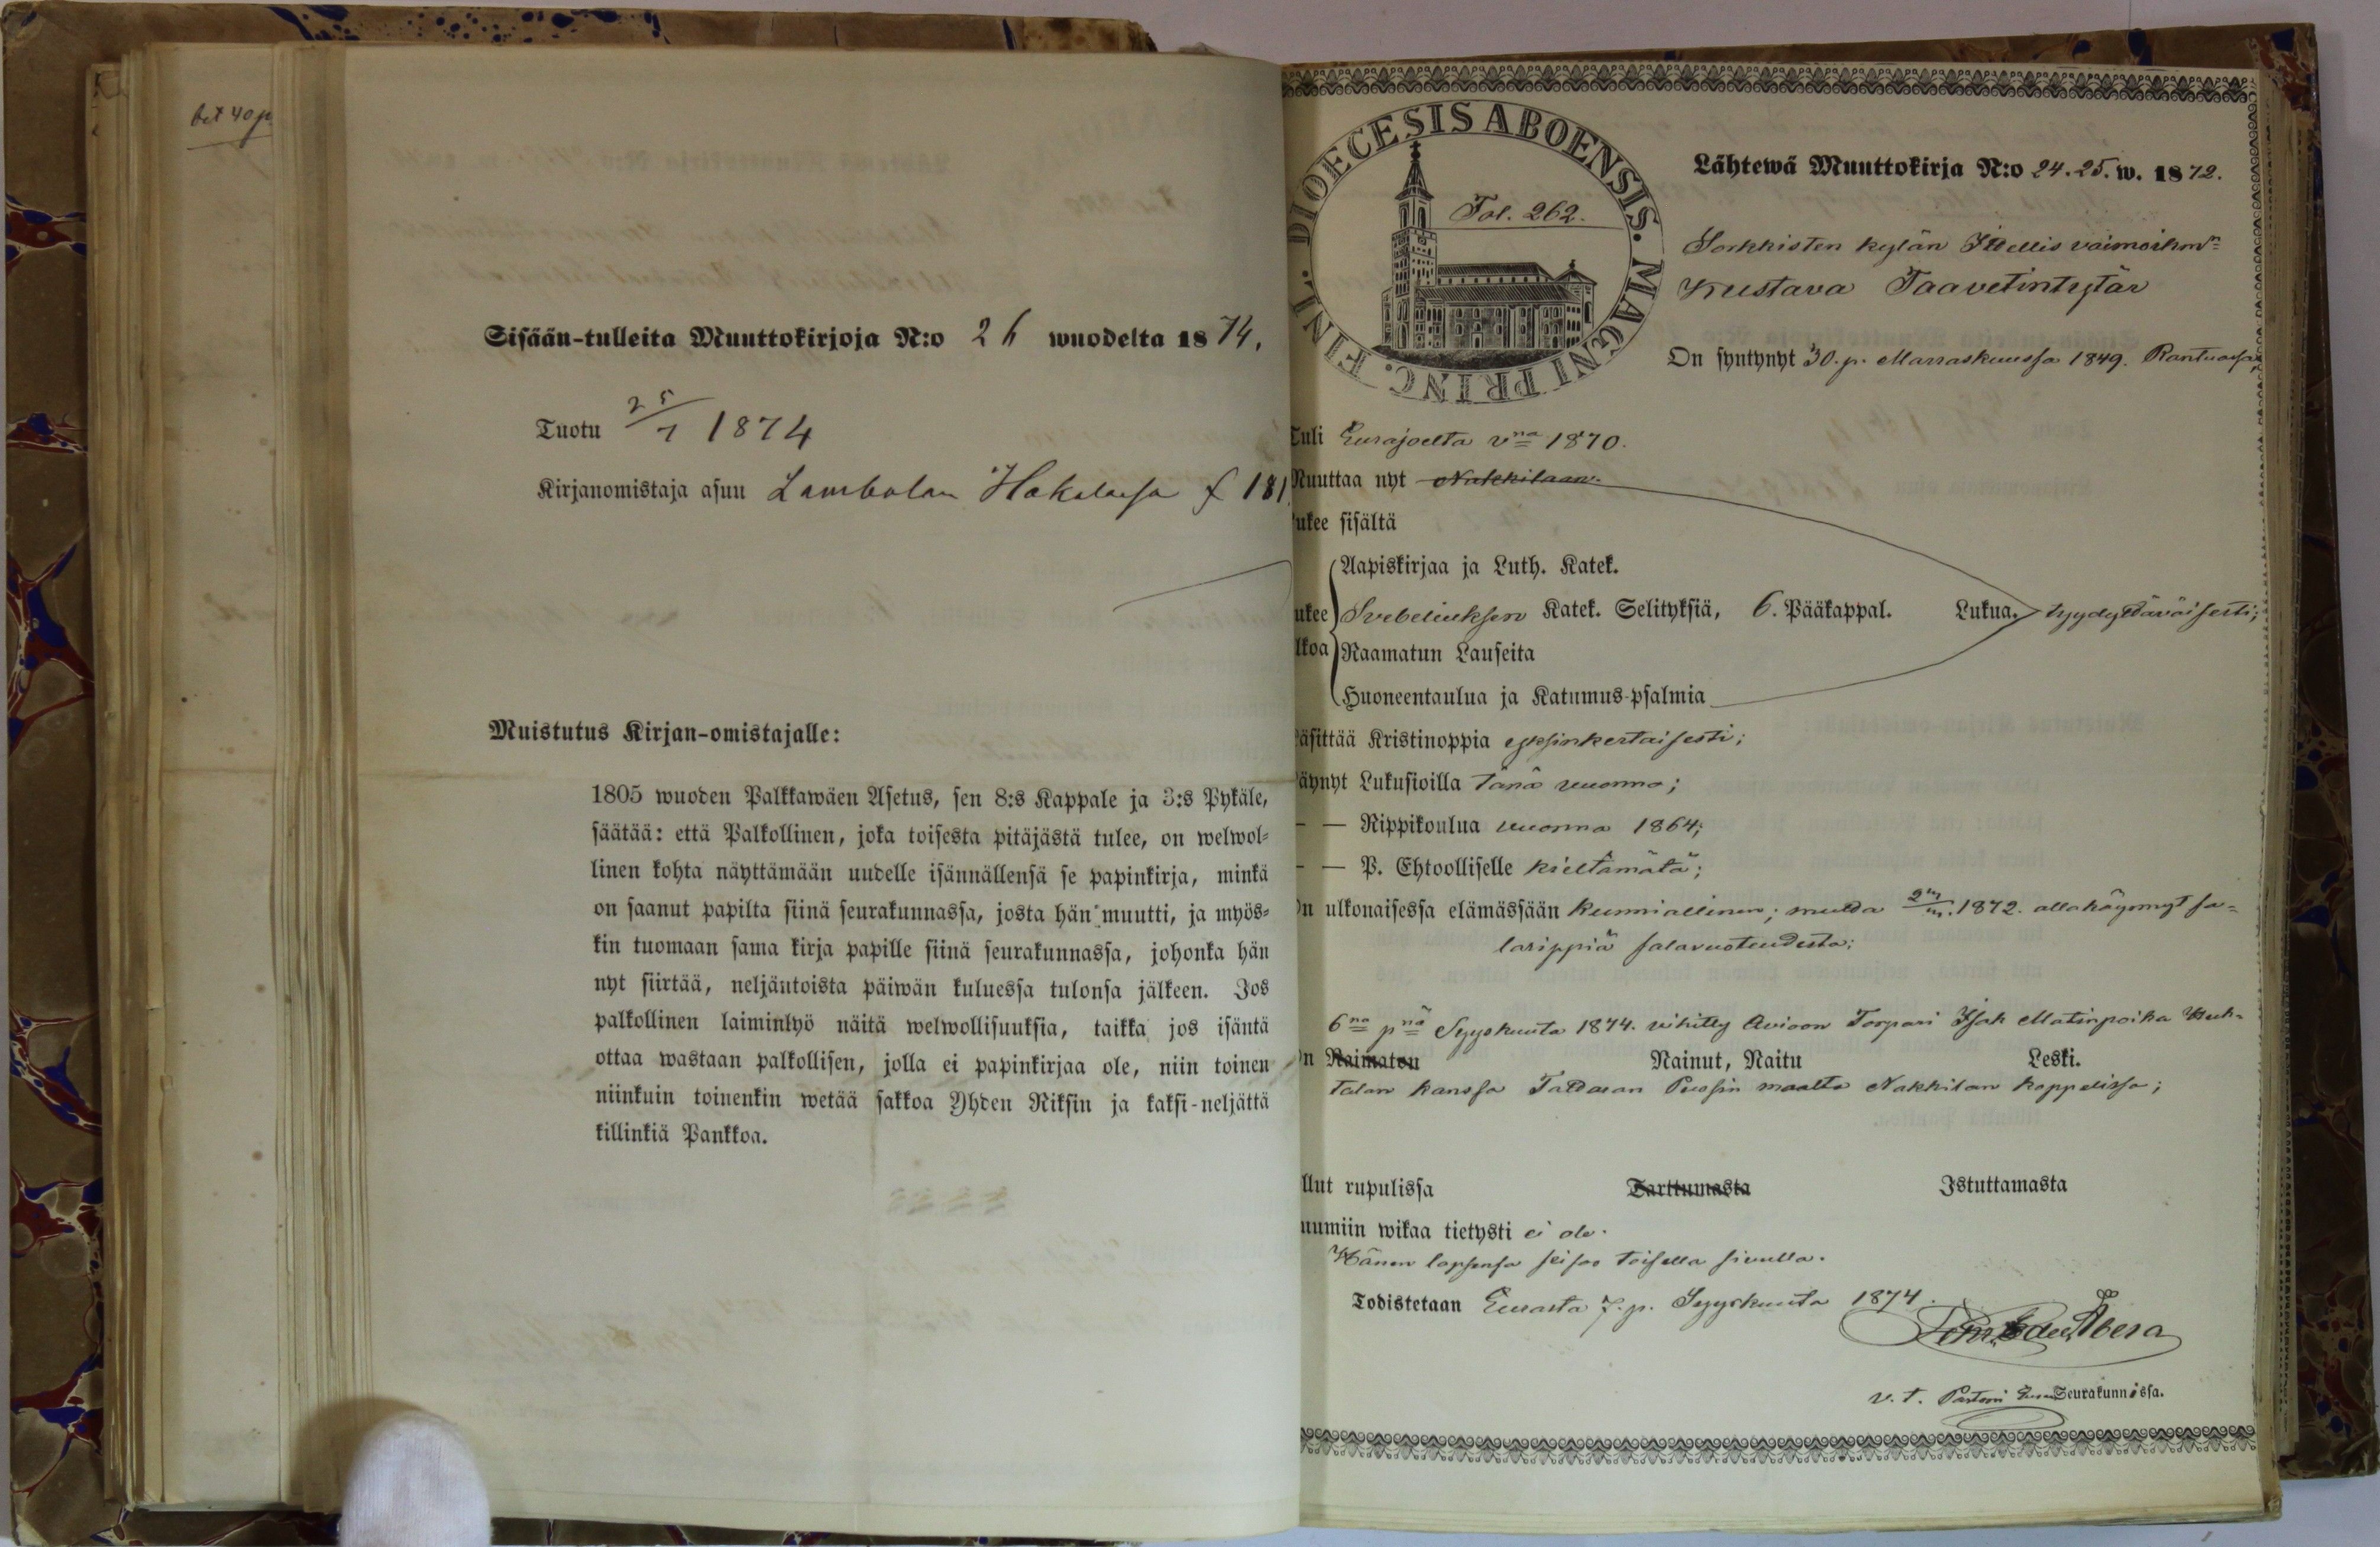 bet 40 p
Sisään-tulleita Muuttokirjoja N:o 26 wuodelta 1874.
Tuotu 25/7 1874
Kirjanomistaja asuu Lambolan Hakalassa f 181
Muistutus Kirjan-omistajalle:
1805 wuoden Palkkawäen Asetus, sen 8:s Kappale ja 3:s Pykäle,
säätää: että Palkollinen, joka toisesta pitäjästä tulee, on welwol-
linen kohta näyttämään uudelle isännällensä se papinkirja, minkä
on saanut papilta siinä seurakunnassa, josta hän muutti, ja myös-
kin tuomaan sama kirja papille siinä seurakunnassa, johonka hän
nyt siirtää, neljäntoista päiwän kuluessa tulonsa jälkeen. Jos
palkollinen laiminlyö näitä welwollisuuksia, taikka jos isäntä
ottaa wastaan palkollisen, jolla ei papinkirjaa ole, niin toinen
niinkuin toinenkin wetää sakkoa Yhden Riksin ja kaksi-neljättä
killinkiä Pankkoa.
FINL. DIOECESIS ABOENSIS. MAGNI PRINC.
Fol. 262.
Lähtewä Muuttokirja N:o 24.25. w. 1872.
Sorkkisten kylän Itellis vaimoihm:n
Kustava Taavetintytär
On syntynyt 30. p. Marraskuussa 1849.
Tuli Eurajoelta v:na 1870.
Muuttaa nyt Nakkilaan.
ukee sisältä
Aapiskirjaa ja Luth. Katek.
ukee Svebeliuksen Katek. Selityksiä, 6. Pääkappal. Lukua. tyydyttäväisesti;
lkoa Raamatun Lauseita
Huoneentaulua ja Katumus-psalmia
äsittää Kristinoppia yksinkertaisesti;
äynyt Lukusioilla tänä vuonna;
— — Rippikoulua vuonna 1864;
— — P. Ehtoolliselle kieltämätä;
On ulkonaisessa elämässään kunniallinen; mutta 1872. allakäynnyt sa-
larippiä salavuoteudesta;
6:na p:nä Syyskuuta 1874. vihitty Avioon Torpari Isak Matinpoika Huh-
On Raimaton Nainut, Naitu Leski.
talan kanssa Tattaran Pussin maalta Nakkilan kappelissa;
llut rupulissa Tarttumasta Istuttamasta
uumiin wikaa tietysti ei ole.
Hänen lapsensa seisoo toisella sivulla.
Todistetaan Eurasta 7. p. Syyskuuta 1874.
v. t. Pastori Euran Seurakunnissa.